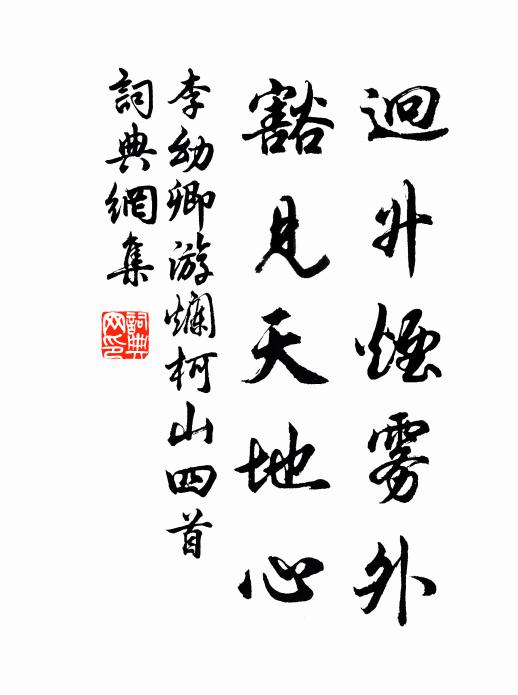 迥升煙雾外
豁見天地心
李幼卿游爛柯山四首
詞典網集